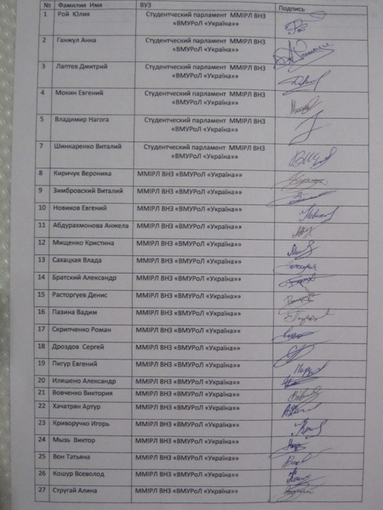 № Фамилия Имя ВУЗ Подпись
1 Рой Юлия Студенческий парламент ММІРЛ ВНЗ
«ВМУРоЛ «Україна»»
2 Ганжул Анна Студенческий парламент ММІРЛ ВНЗ
«ВМУРоЛ «Україна»»
3 Лаптев Дмитрий Студенческий парламент ММІРЛ ВНЗ
«ВМУРоЛ «Україна»»
4 Мокин Евгений Студенческий парламент ММІРЛ ВНЗ
«ВМУРоЛ «Україна»»
5 Владимир Нагога Студенческий парламент ММІРЛ ВНЗ
«ВМУРоЛ «Україна»»
7 Шинкаренко Виталий Студенческий парламент ММІРЛ ВНЗ
«ВМУРоЛ «Україна»»
8 Киричук Вероника ММІРЛ ВНЗ «ВМУРоЛ «Україна»»
9 Зимбровский Виталий ММІРЛ ВНЗ «ВМУРоЛ «Україна»»
10 Новиков Евгений ММІРЛ ВНЗ «ВМУРоЛ «Україна»»
11 Абдурахмонова Анжела ММІРЛ ВНЗ «ВМУРоЛ «Україна»»
12 Мищенко Кристина ММІРЛ ВНЗ «ВМУРоЛ «Україна»»
13 Сахацкая Влада ММІРЛ ВНЗ «ВМУРоЛ «Україна»»
14 Братский Александр ММІРЛ ВНЗ «ВМУРоЛ «Україна»»
15 Расторгуев Денис ММІРЛ ВНЗ «ВМУРоЛ «Україна»»
16 Пазина Вадим ММІРЛ ВНЗ «ВМУРоЛ «Україна»»
17 Скрипченко Роман ММІРЛ ВНЗ «ВМУРоЛ «Україна»»
18 Дроздов Сергей ММІРЛ ВНЗ «ВМУРоЛ «Україна»»
19 Пигур Евгений ММІРЛ ВНЗ «ВМУРоЛ «Україна»»
20 Иляшено Александр ММІРЛ ВНЗ «ВМУРоЛ «Україна»»
21 Вовченко Виктория ММІРЛ ВНЗ «ВМУРоЛ «Україна»»
22 Хачатрян Артур ММІРЛ ВНЗ «ВМУРоЛ «Україна»»
23 Криворучко Игорь ММІРЛ ВНЗ «ВМУРоЛ «Україна»»
24 Мызь Виктор ММІРЛ ВНЗ «ВМУРоЛ «Україна»»
25 Вон Татьяна ММІРЛ ВНЗ «ВМУРоЛ «Україна»»
26 Кошур Всеволод ММІРЛ ВНЗ «ВМУРоЛ «Україна»»
27 Стругай Алина ММІРЛ ВНЗ «ВМУРоЛ «Україна»»